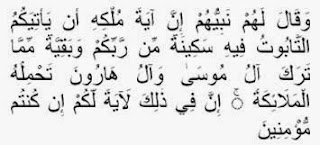 وَقَالَ لَهُمْ نَبِيُّهُمْ إِنَّ آيَةَ مُلْكِهِ أَن يَأْتِيَكُمُ
التَّابُوتُ فِيهِ سَكِينَةٌ مِّن رَّبِّكُمْ وَبَقِيَّةٌ مِّمَّا
تَرَكَ آلُ مُوسَىٰ وَآلُ هَارُونَ تَحْمِلُهُ
الْمَلَائِكَةُ ۚ إِنَّ فِي ذَٰلِكَ لَآيَةً لَّكُمْ إِن كُنتُم
مُّؤْمِنِينَ